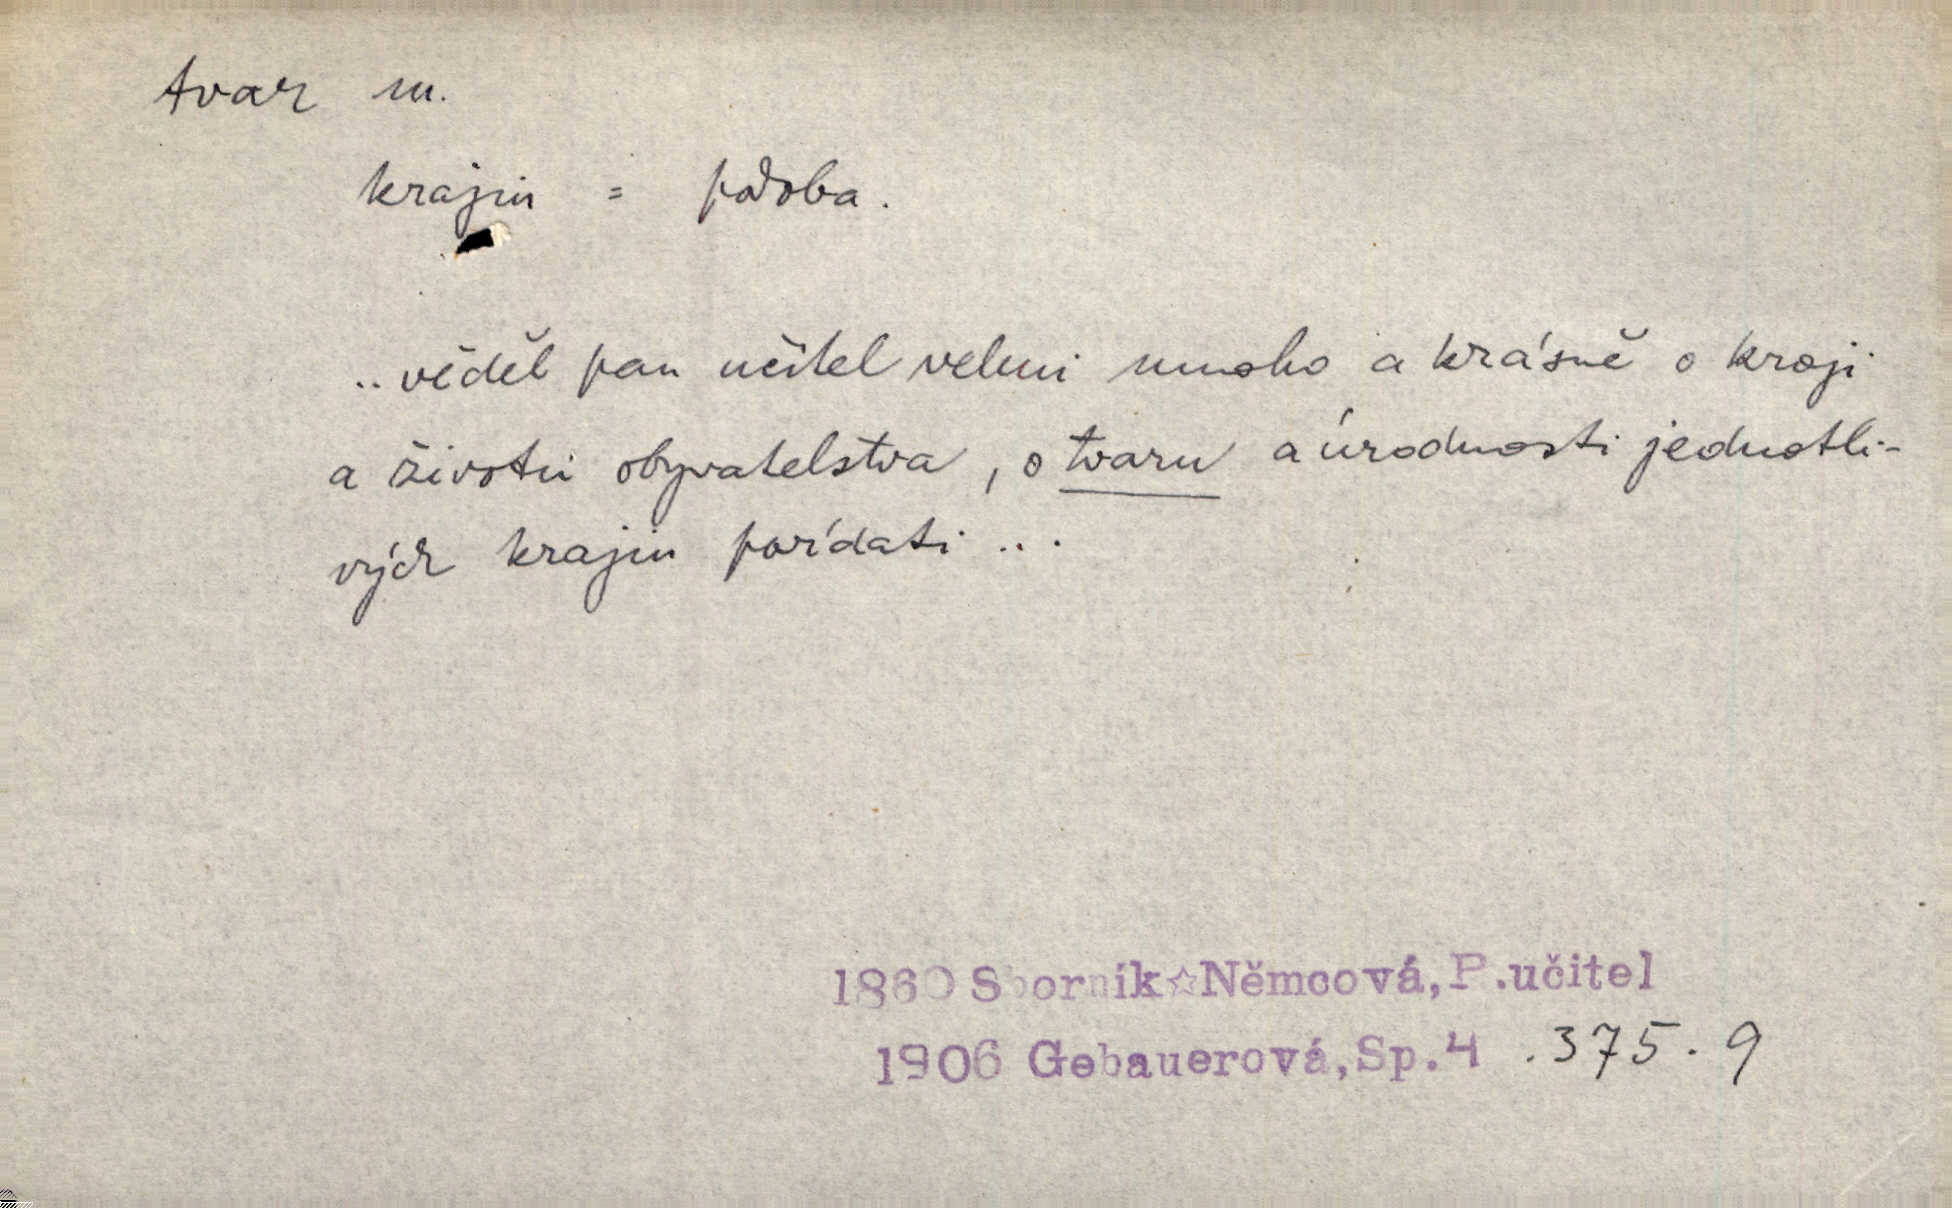 tvar m.
krajin = podoba.
..věděl pan učitel velmi mnoho a krásně o kroji
a životu obyvatelstva, o tvaru a úrodnosti jednotli-
vých krajin povídati ...
1860 Sborník☆Němcová,P.učitel
1906 Gebauerová,Sp.4 .375.9